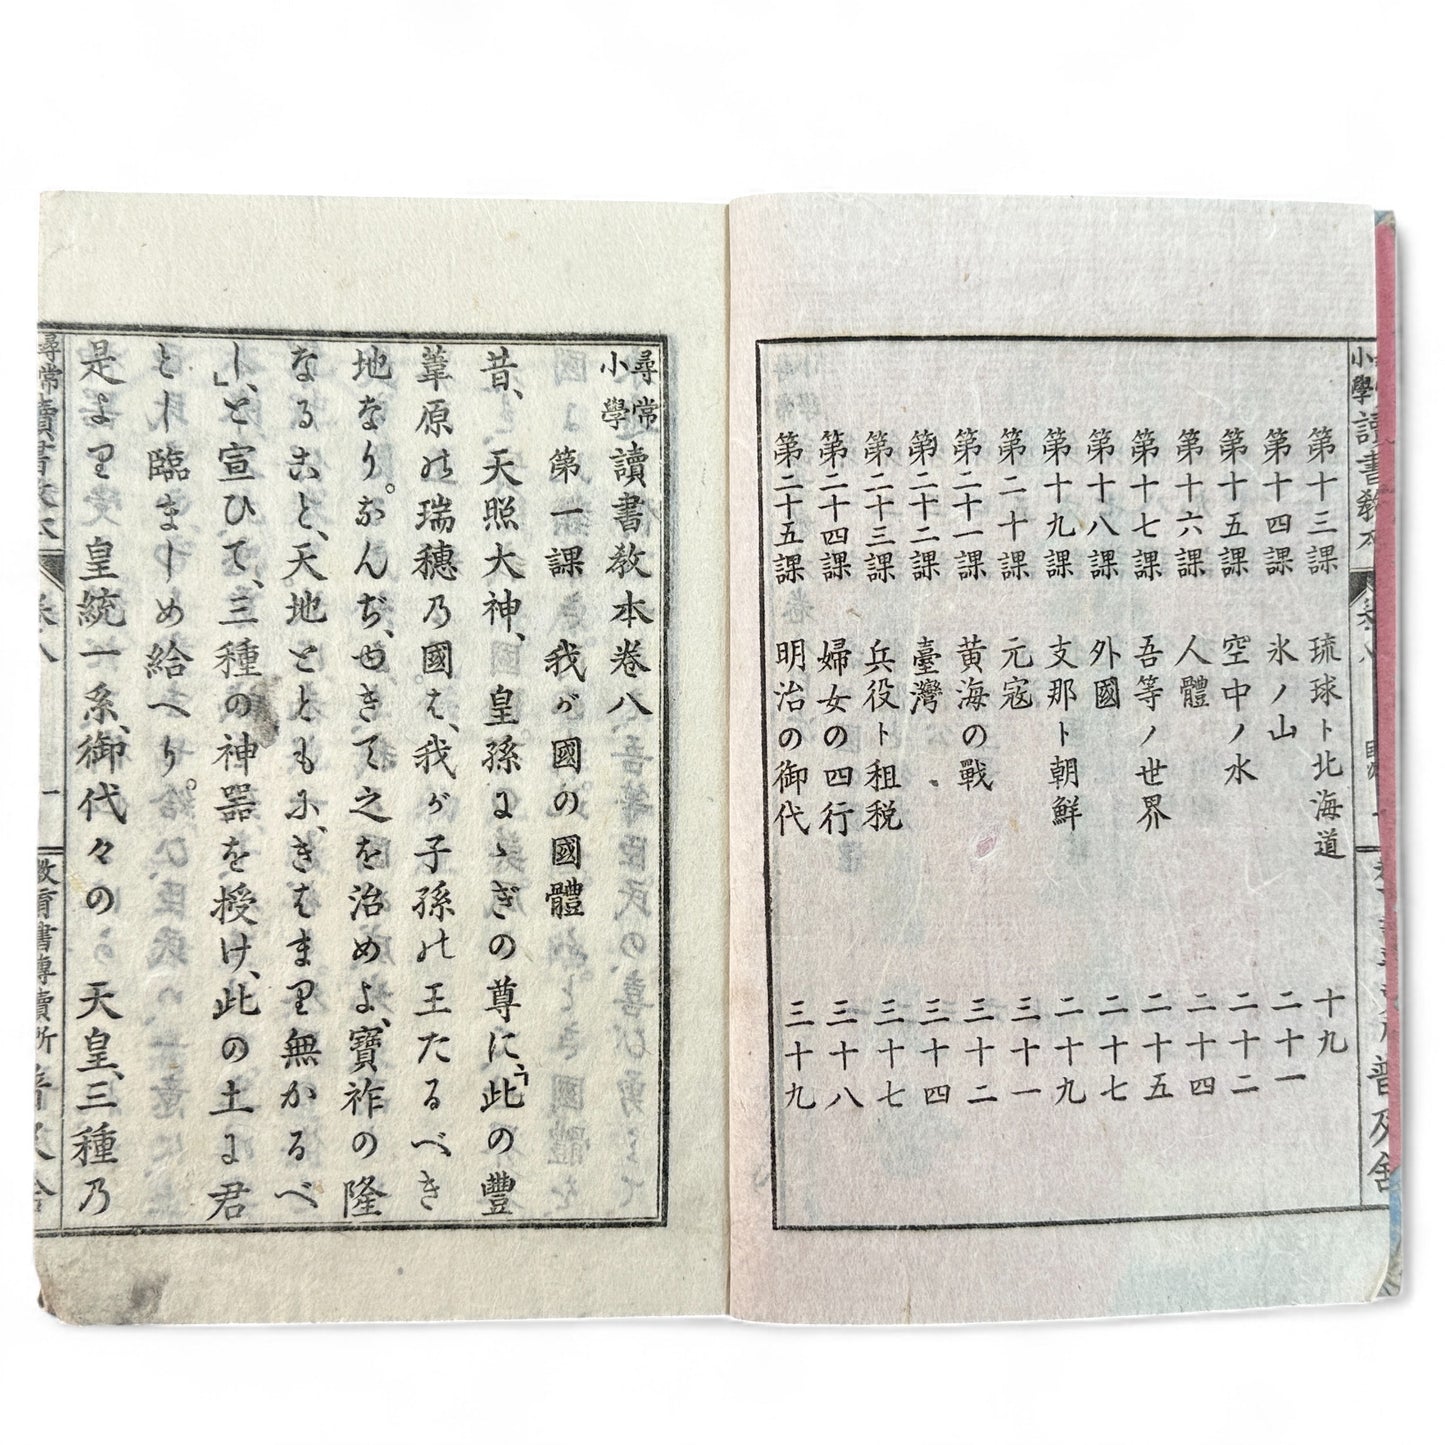 小學讀書教本 卷八 普及舍
第十三課 琉球ト北海道 十九
第十四課 氷ノ山 二十一
第十五課 空中ノ水 二十二
第十六課 人體 二十四
第十七課 吾等ノ世界 二十五
第十八課 外國 二十七
第十九課 支那ト朝鮮 二十九
第二十課 元寇 三十一
第二十一課 黄海の戰 三十二
第二十二課 臺灣 三十四
第二十三課 兵役ト租税 三十七
第二十四課 婦女の四行 三十八
第二十五課 明治の御代 三十九
尋常小學讀書教本卷八
第一課 我が國の國體
昔、天照大神、皇孫に、ぎの尊に、「此の豐
葦原の瑞穗の國は、我が子孫の王たるべき
地なり。なんぢ、ゆきて之を治めよ、寶祚の隆
なること、天地とともに、きはまり無かるべ
し、」と宣ひて、三種の神器を授け、此の土に君
とし臨ましめ給へり。
是より皇統一系、御代々の 天皇、三種の
尋常讀書教本 卷八 一 教育書專賣所 普及舍